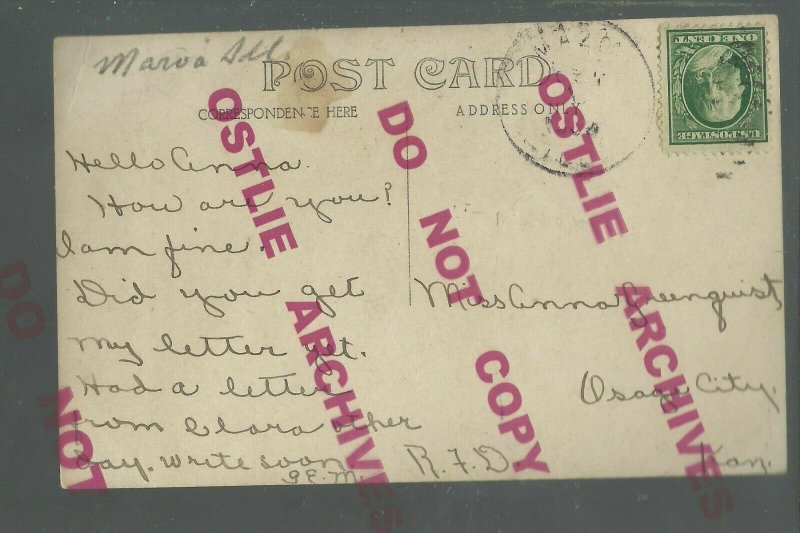 Marva Ill.
POST CARD
CORRESPONDENCE HERE
ADDRESS ONLY
ONE CENT
U.S. POSTAGE
Hello Anna
How are you?
I am fine.
Did you get
my letter yet.
Had a letter
from Clara other
day. write soon
G.E.M.
Miss Anna Greenquist
Osage City.
R.F.D.
Kan.
OSTLIE ARCHIVES
DO NOT COPY
OSTLIE ARCHIVES
DO NOT